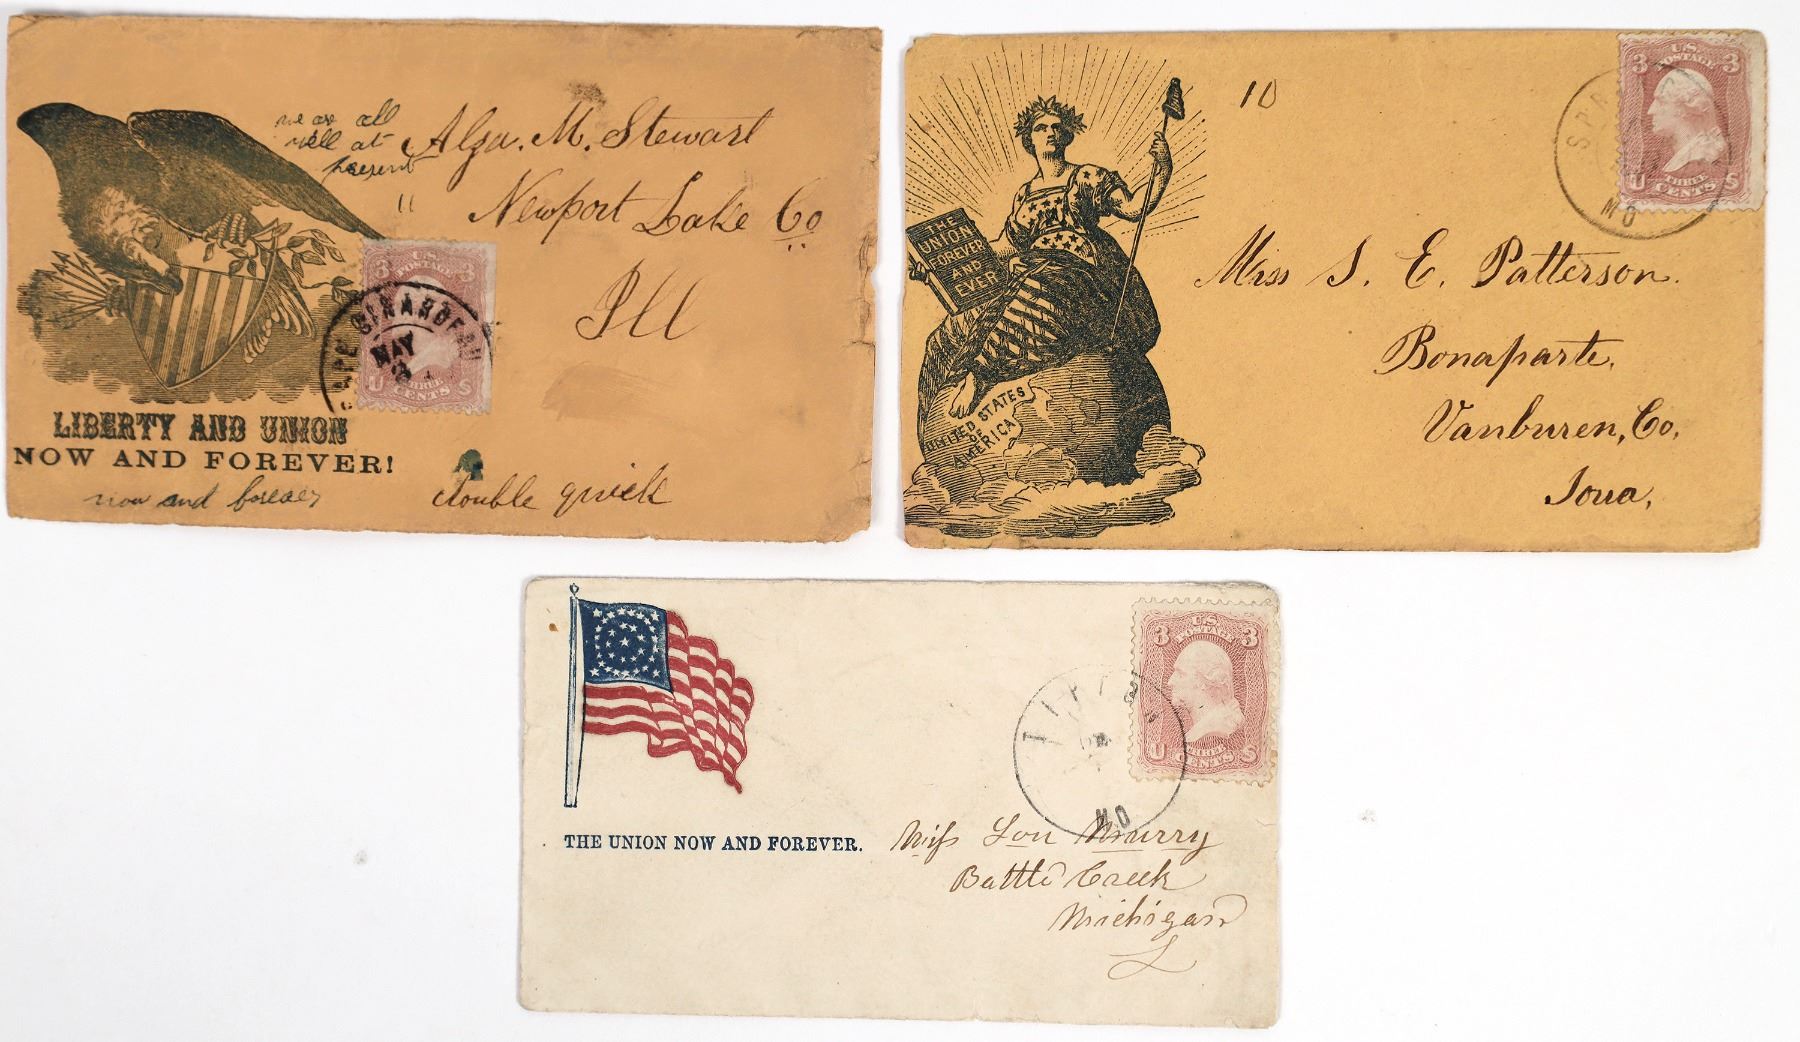 we are all
well at
present
Alga. M. Stewart
Newport Lake Co
Ill
3 U.S. POSTAGE 3
U THREE CENTS S
CAPE GIRARDEAU
MAY
3
LIBERTY AND UNION
NOW AND FOREVER!
now and forever
double quick
10
THE
UNION
FOREVER
AND
EVER
UNITED STATES
OF
AMERICA
3 U.S. POSTAGE 3
U THREE CENTS S
MO
Miss S. E. Patterson.
Bonaparte,
Vanburen, Co,
Iowa,
3 U.S. POSTAGE 3
U THREE CENTS S
MO
THE UNION NOW AND FOREVER.
Miss Lou Murry
Battle Creek
Michigan